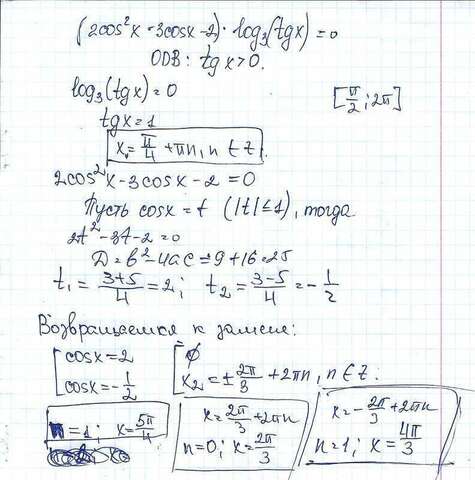 (2cos²x - 3cosx - 2) · log₃(tgx) = 0
ОДВ: tgx > 0.
log₃(tgx) = 0
[π/2 ; 2π]
tgx = 1
x₁ = π/4 + πn, n ∈ Z.
2cos²x - 3cosx - 2 = 0
Пусть cosx = t (|t| ≤ 1), тогда
2t² - 3t - 2 = 0
D = b² - 4ac = 9 + 16 = 25
t₁ = (3+5)/4 = 2; t₂ = (3-5)/4 = -1/2
Возвращаемся к замене:
[cosx = 2 [∅
[cosx = -1/2 [x₂ = ± 2π/3 + 2πn, n ∈ Z.
n = 1; x = 5π/4
x = 2π/3 + 2πn
n = 0; x = 2π/3
x = - 2π/3 + 2πn
n = 1; x = 4π/3